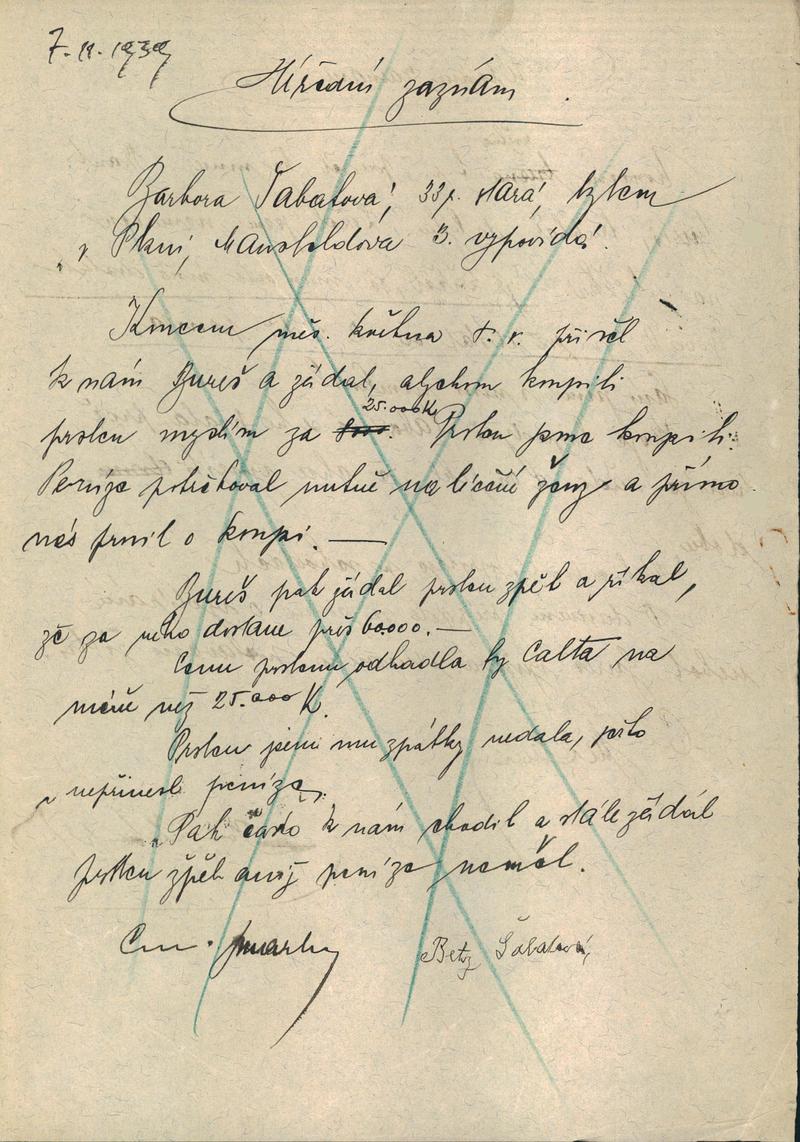 7. 11. 1939
Úřední záznam.
Barbora Šabatová, 33 r. stará, bytem
v Plzni, Mansfeldova 3. vypovídá:
Koncem měs. května t. r. přišel
k nám Bureš a žádal, abychom koupili
prsten myslím za 25.000 K. Prsten jsme koupili.
Peníze potřeboval nutně na léčení ženy a přímo
nás prosil o koupi. —
Bureš pak žádal prsten zpět a říkal,
že za něho dostane přes 60000. —
Cenu prstenu odhadla by Calta na
méně než 25.000 K.
Prsten jsem mu zpátky nedala, ješto
nepřinesl peníze.
Pak často k nám chodil a stále žádal
prsten zpět aniž peníze neměl.
Betty Šabatová,